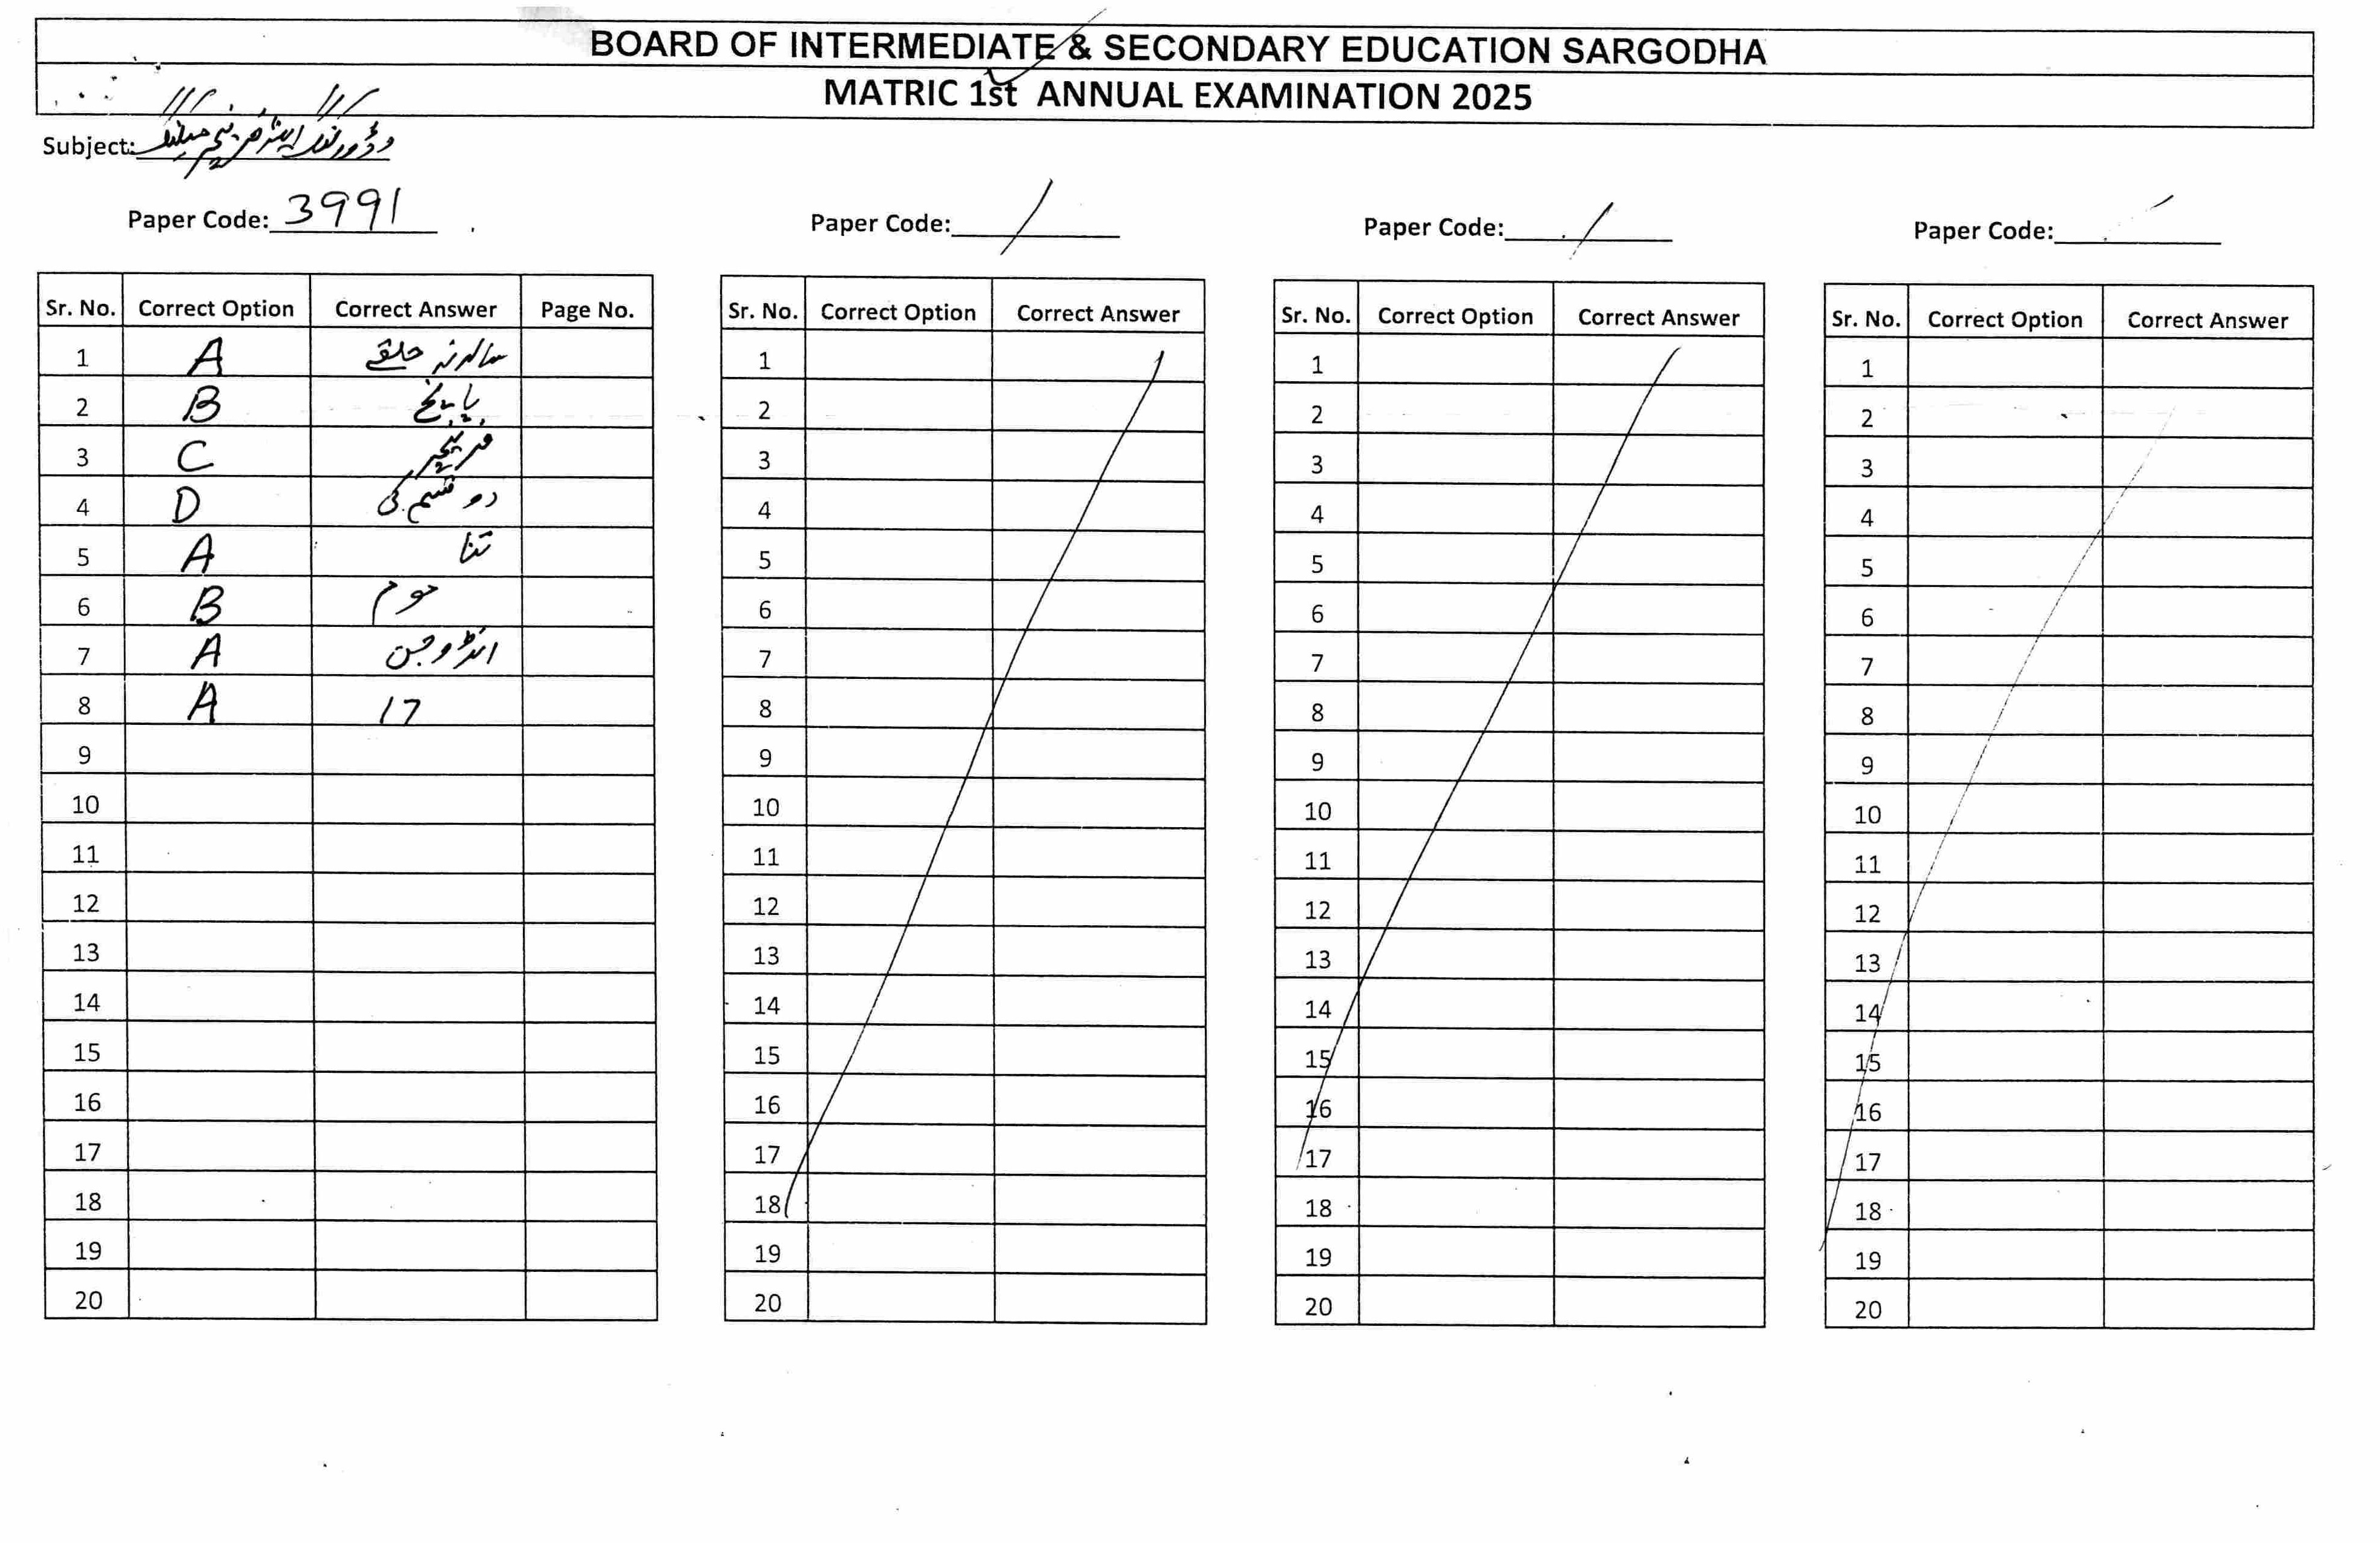 BOARD OF INTERMEDIATE & SECONDARY EDUCATION SARGODHA
MATRIC 1st ANNUAL EXAMINATION 2025
Subject: وڈ ورک اینڈ فرنیچر میکنگ
Paper Code: 3991
Paper Code:
Paper Code:
Paper Code:
Sr. No. Correct Option Correct Answer Page No.
1 A سالانہ حلقے
2 B پانچ
3 C فرنیچر
4 D دو قسم کی
5 A تنا
6 B سوم
7 A انڈوجن
8 A 17
9
10
11
12
13
14
15
16
17
18
19
20
Sr. No. Correct Option Correct Answer
1
2
3
4
5
6
7
8
9
10
11
12
13
14
15
16
17
18
19
20
Sr. No. Correct Option Correct Answer
1
2
3
4
5
6
7
8
9
10
11
12
13
14
15
16
17
18
19
20
Sr. No. Correct Option Correct Answer
1
2
3
4
5
6
7
8
9
10
11
12
13
14
15
16
17
18
19
20